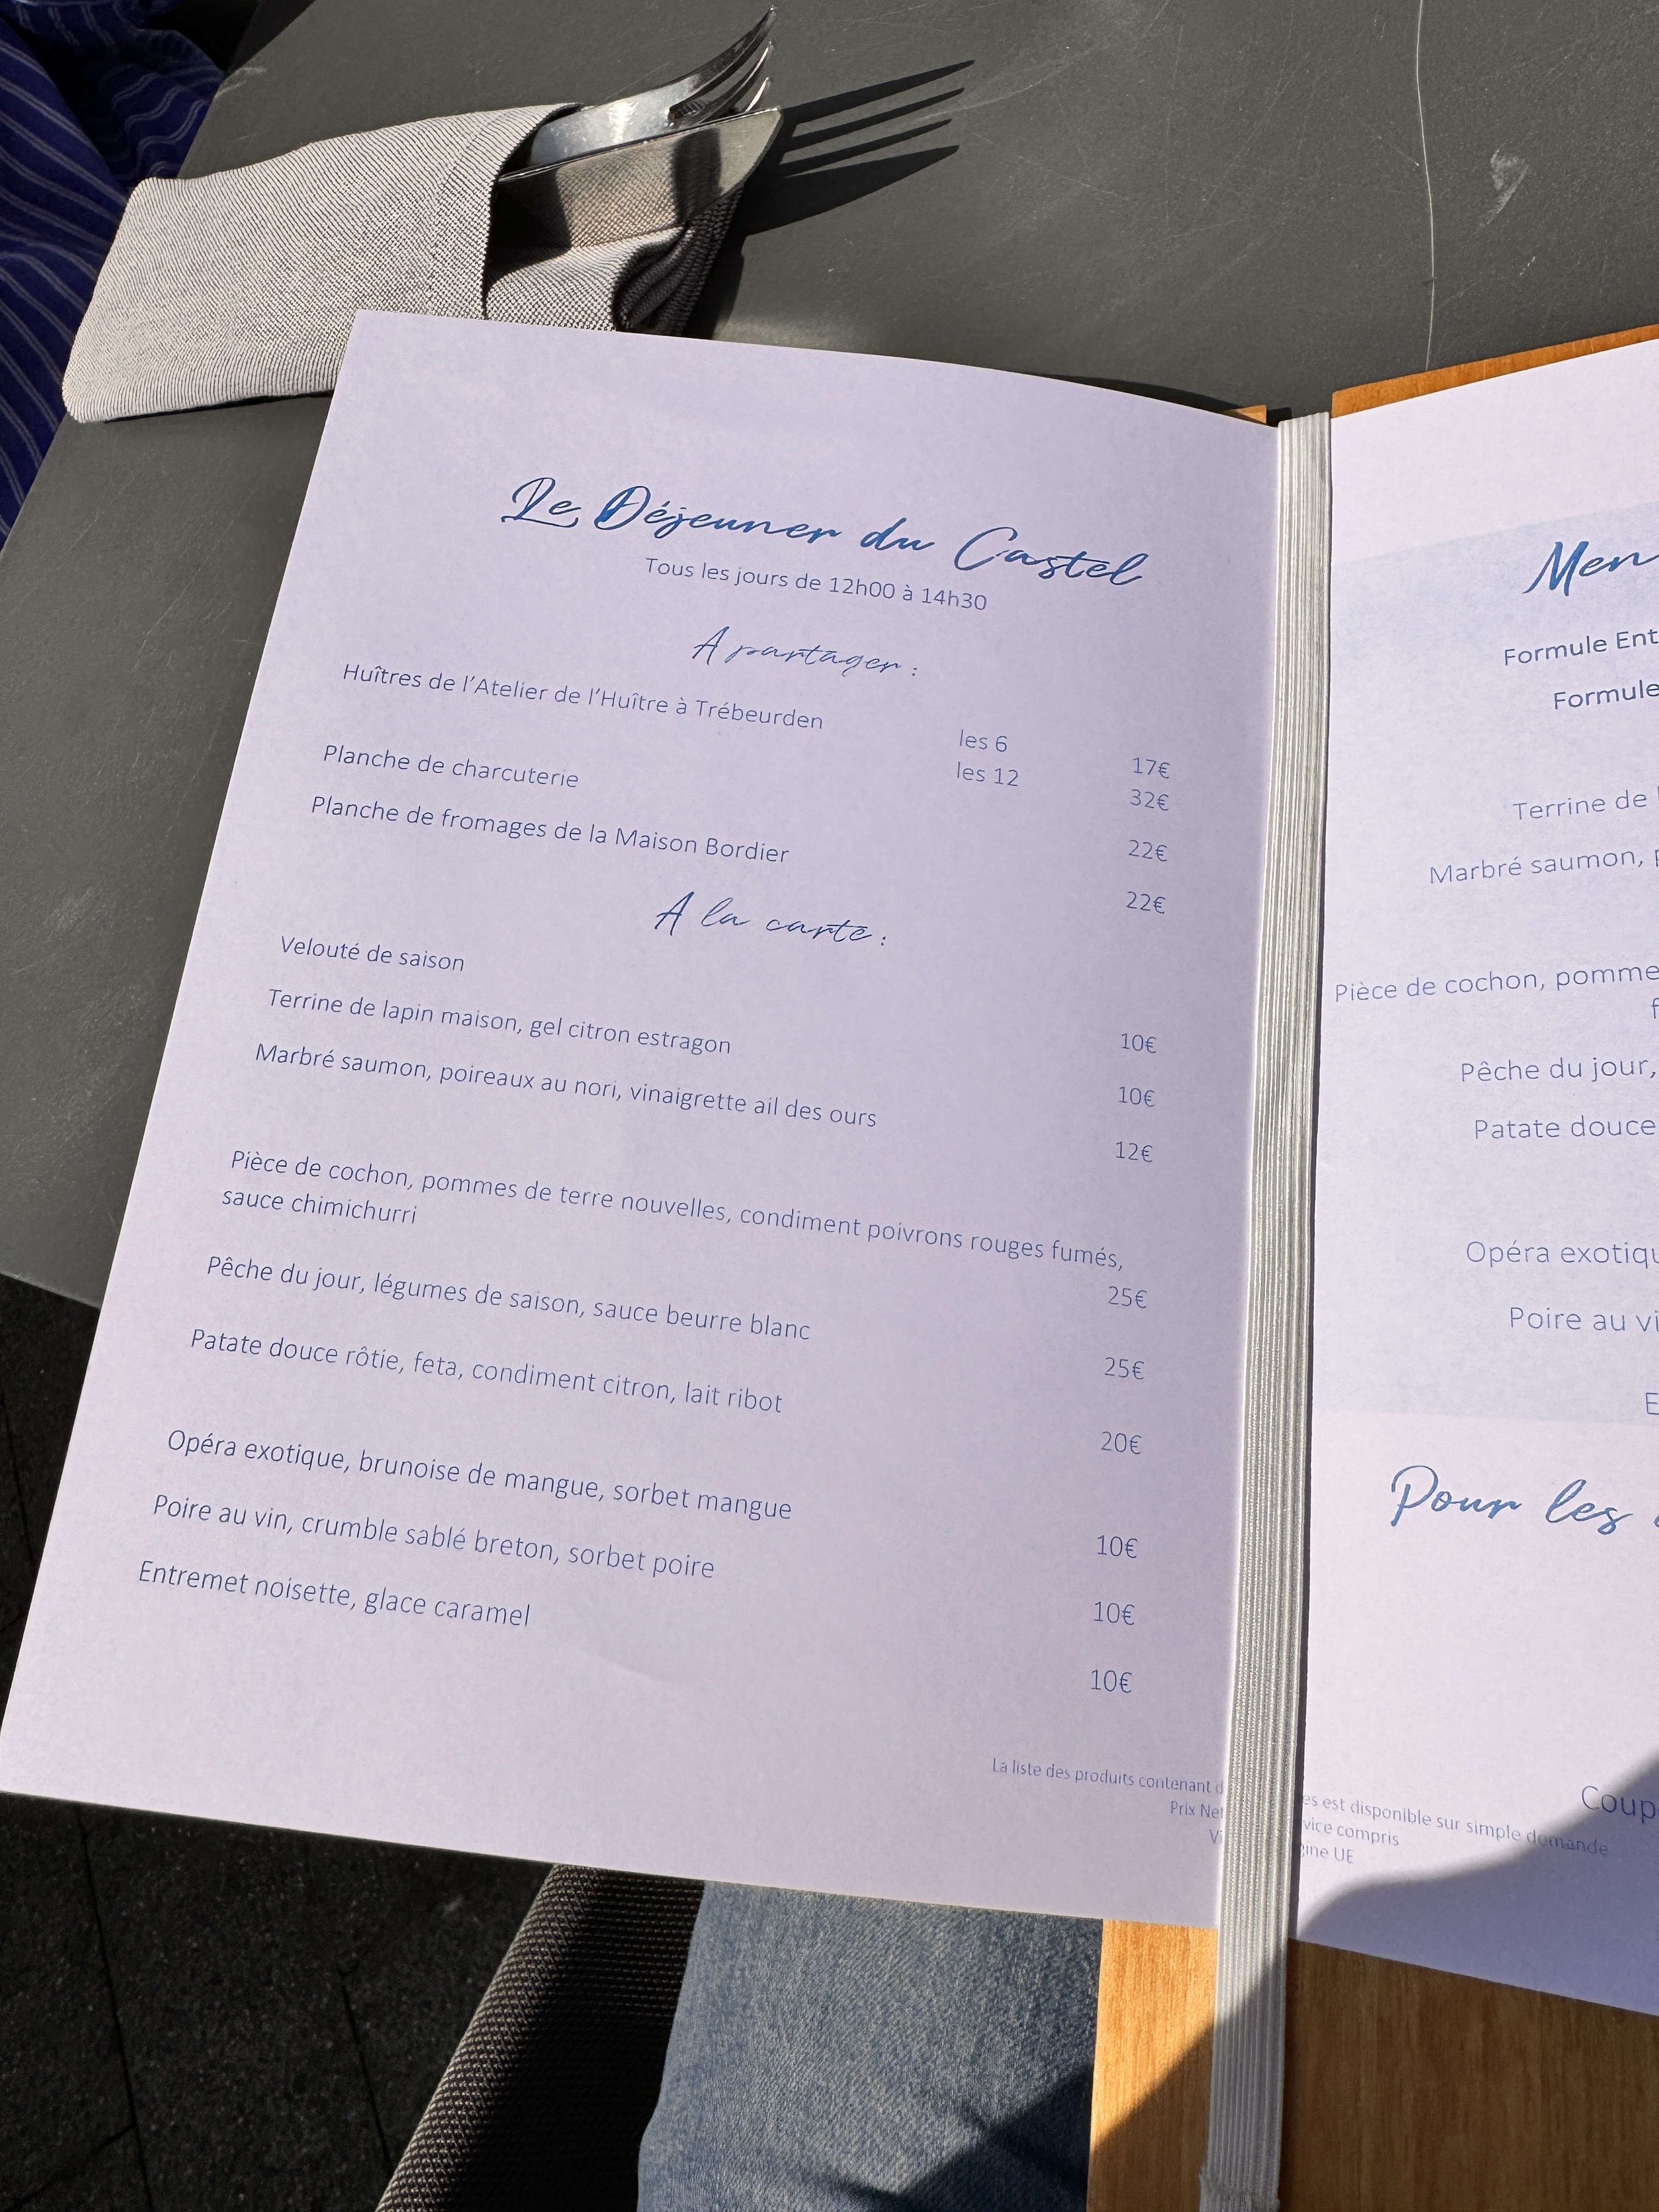 Le Déjeuner du Castel
Tous les jours de 12h00 à 14h30
A partager :
Huîtres de l'Atelier de l'Huître à Trébeurden
les 6 17€
les 12 32€
Planche de charcuterie 22€
Planche de fromages de la Maison Bordier 22€
A la carte :
Velouté de saison 10€
Terrine de lapin maison, gel citron estragon 10€
Marbré saumon, poireaux au nori, vinaigrette ail des ours 12€
Pièce de cochon, pommes de terre nouvelles, condiment poivrons rouges fumés,
sauce chimichurri 25€
Pêche du jour, légumes de saison, sauce beurre blanc 25€
Patate douce rôtie, feta, condiment citron, lait ribot 20€
Opéra exotique, brunoise de mangue, sorbet mangue 10€
Poire au vin, crumble sablé breton, sorbet poire 10€
Entremet noisette, glace caramel 10€
La liste des produits contenant
Prix
Formule
Formule
Terrine de
Marbré saumon,
Pièce de cochon,
Pêche du jour,
Patate douce
Opéra
Poire au
Pour les
est disponible sur simple demande
compris
UE